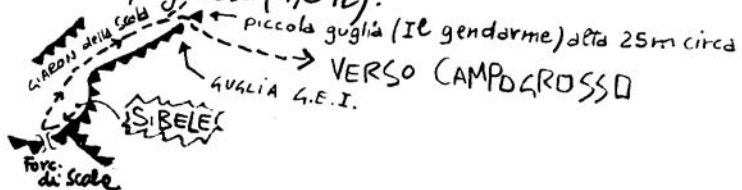 GIARON della Scala
piccola guglia (Il gendarme) alta 25m circa
VERSO CAMPOGROSSO
GUGLIA G.E.I.
SIBELE
Forc.
di Scala